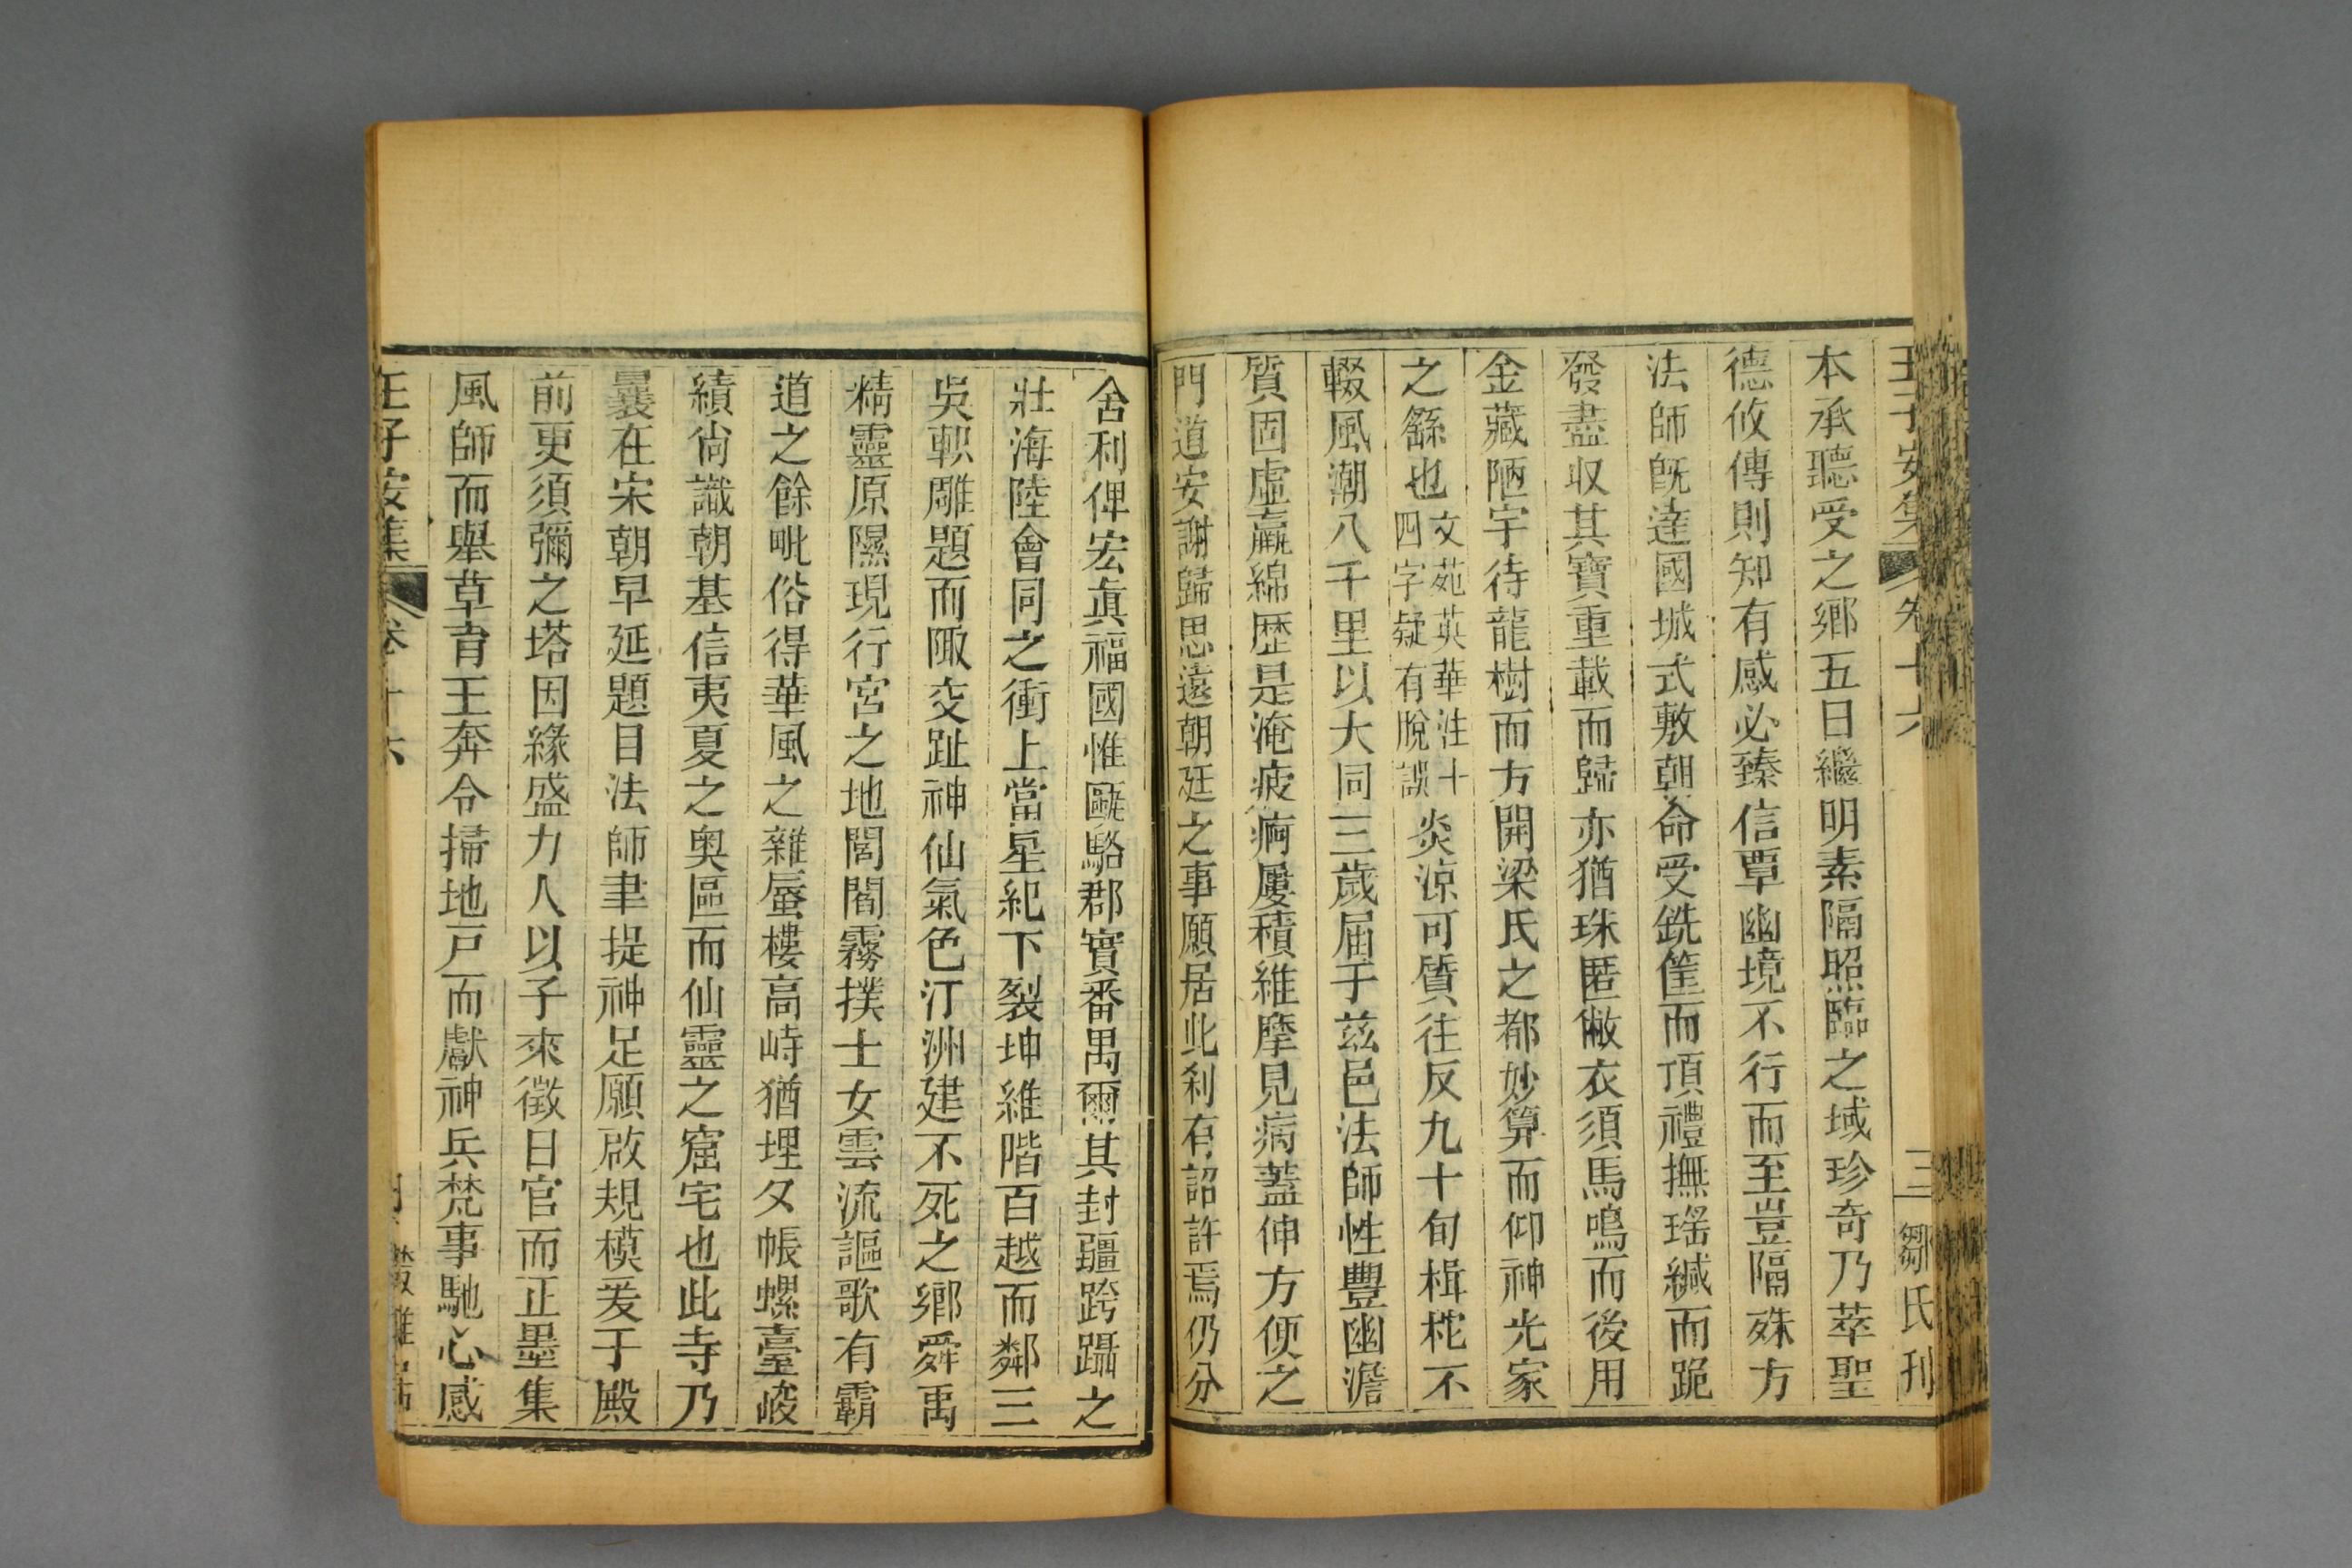 王子安集 卷十六 三 鄒氏刊
本承聽受之鄉五日繼明素隔照臨之域珍奇乃萃聖
德攸傳則知有感必臻信覃幽境不行而至豈隔殊方
法師旣達國城式敷朝命受銑筐而頂禮撫瑤緘而跪
發盡収其寶重載而歸亦猶珠匿敝衣須馬鳴而後用
金藏陋宇待龍樹而方開梁氏之都妙算而仰神光家
之繇也文苑英華注十四字疑有脫誤炎涼可質往反九十旬楫柁不
輟風潮八千里以大同三歲届于茲邑法師性豐幽澹
質固虛羸綿歴是淹疲痾屢積維摩見病蓋伸方便之
門道安謝歸思遠朝廷之事願居此刹有詔許焉仍分
舍利俾宏眞福國惟甌駱郡實番禺爾其封疆跨躡之
壯海陸會同之衝上當星紀下裂坤維階百越而鄰三
吳軹雕題而陬交趾神仙氣色汀洲建不死之鄉舜禹
精靈原隰現行宮之地閭閻霧撲士女雲流謳歌有霸
道之餘甿俗得華風之雜蜃樓高峙猶埋夕帳螺臺峻
績尙識朝基信夷夏之奧區而仙靈之窟宅也此寺乃
曩在宋朝早延題目法師聿提神足願啟規模爰于殿
前更須彌之塔因緣盛力人以子來徵日官而正墨集
風師而舉草育王奔令掃地戸而獻神兵梵事馳心感
王子安集 卷十六